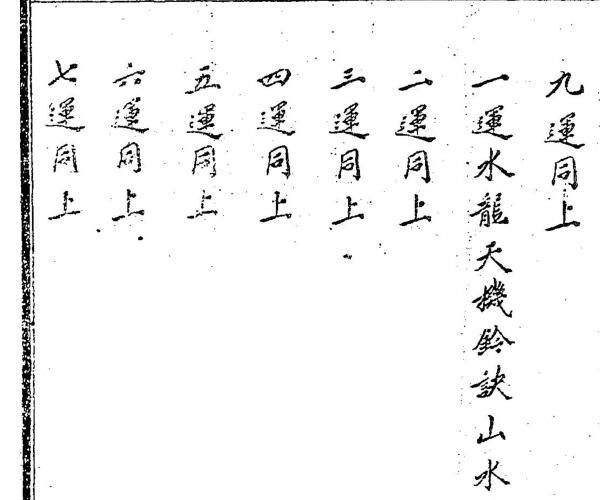 九運同上
一運水龍天機鈴訣山水
二運同上
三運同上
四運同上
五運同上
六運同上
七運同上